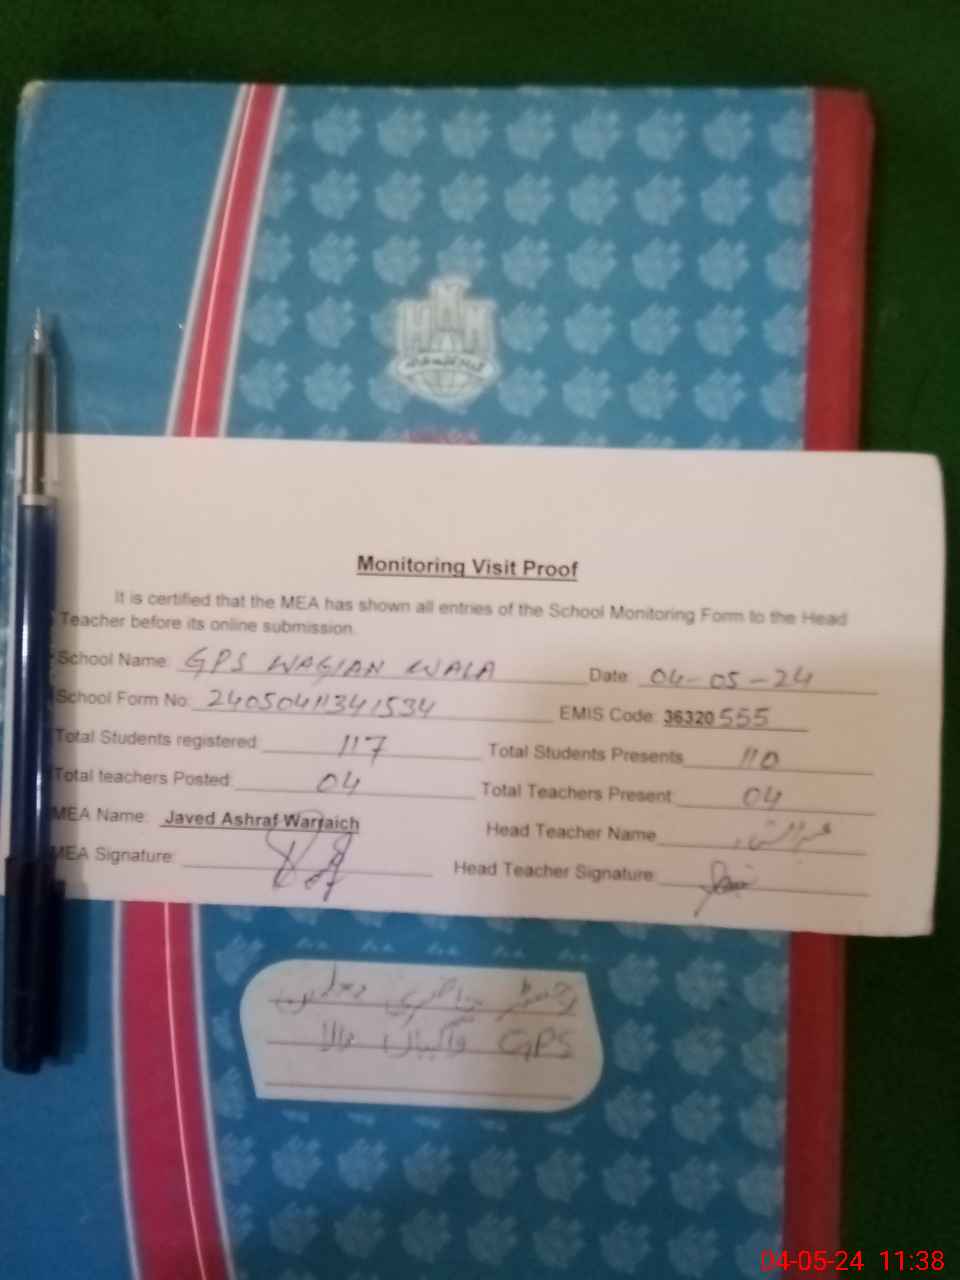 Monitoring Visit Proof
It is certified that the MEA has shown all entries of the School Monitoring Form to the Head
Teacher before its online submission.
School Name: GPS WAGIAN WALA Date: 04-05-24
School Form No: 24050411341534 EMIS Code: 36320555
Total Students registered: 117 Total Students Presents 110
Total teachers Posted: 04 Total Teachers Present: 04
MEA Name: Javed Ashraf Warraich Head Teacher Name
MEA Signature: Head Teacher Signature:
رجسٹر حاضری
GPS واگیاں والا
04-05-24 11:38